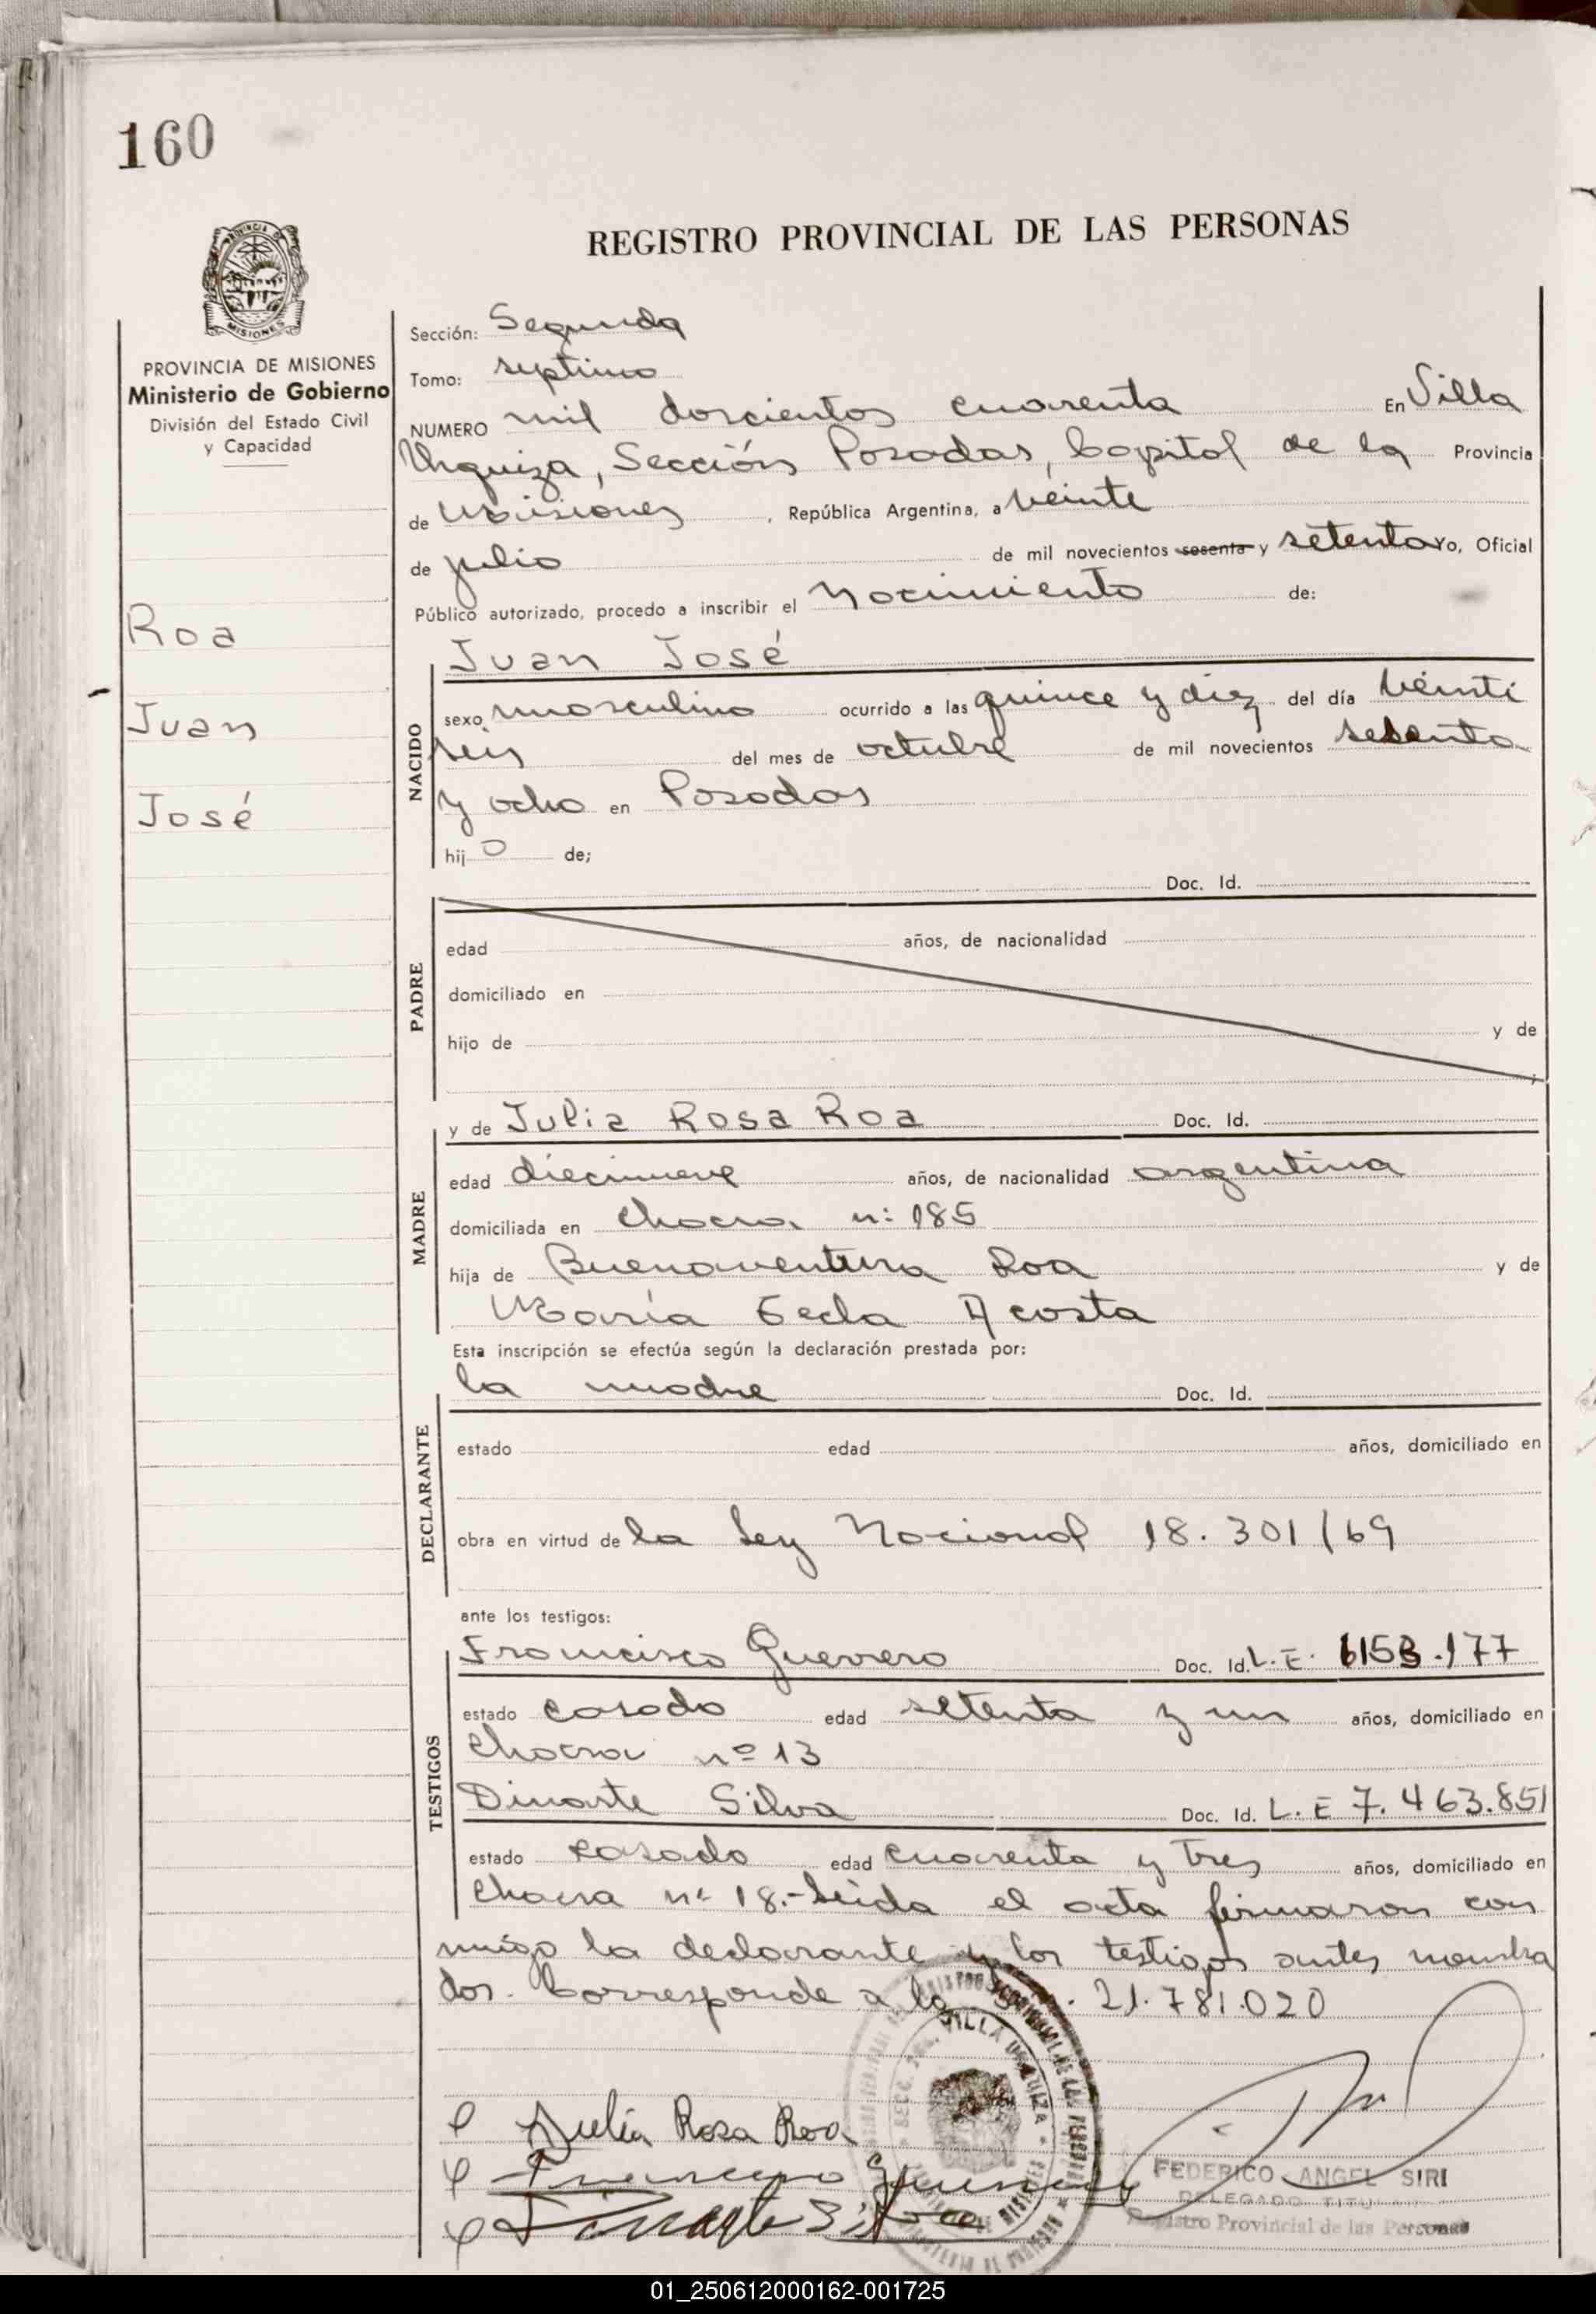 160
REGISTRO PROVINCIAL DE LAS PERSONAS
MISIONES
PROVINCIA DE MISIONES
Ministerio de Gobierno
División del Estado Civil
y Capacidad
Roa
Juan
José
Sección: Segunda
Tomo: septimo
NUMERO mil doscientos cuarenta En Villa
Urquiza, Sección Posadas, Capital de la Provincia
de Misiones, República Argentina, a veinte
de julio de mil novecientos sesenta y setenta yo, Oficial
Público autorizado, procedo a inscribir el Nacimiento de:
NACIDO
Juan José
sexo masculino ocurrido a las quince y diez del día veinti
seis del mes de octubre de mil novecientos sesenta
y ocho en Posadas
hijo de;
Doc. Id.
PADRE
edad años, de nacionalidad
domiciliado en
hijo de y de
MADRE
y de Julia Rosa Roa Doc. Id.
edad diecinueve años, de nacionalidad argentina
domiciliada en Chacra n: 185
hija de Buenaventura Roa y de
María Tecla Acosta
Esta inscripción se efectúa según la declaración prestada por:
DECLARANTE
la madre Doc. Id.
estado edad años, domiciliado en
obra en virtud de la Ley Nacional 18.301/69
ante los testigos:
TESTIGOS
Francisco Guerrero Doc. Id. L.E. 6153.177
estado casado edad setenta y un años, domiciliado en
Chacra nº 13
Dinarte Silva Doc. Id. L.E 7.463.851
estado casado edad cuarenta y tres años, domiciliado en
Chacra nº 18.- Leida el acta firmaron con
migo la declarante y los testigos antes nombra
dos. Corresponde a la 21.781.020
Julia Rosa Roa
Francisco Guerrero
Dinarte Silva
VILLA URQUIZA
FEDERICO ANGEL SIRI
DELEGADO TITULAR
Registro Provincial de las Personas
01_250612000162-001725